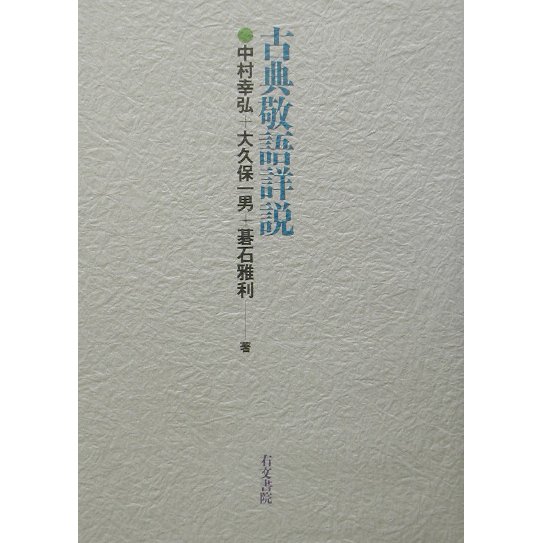 古典敬語詳説
●中村幸弘+大久保一男+碁石雅利──著
右文書院